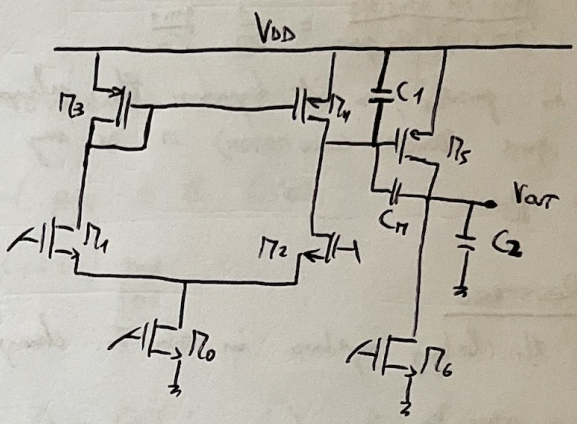 VDD
M3
M4
C1
M5
CM
VOUT
C2
M1
M2
M0
M6